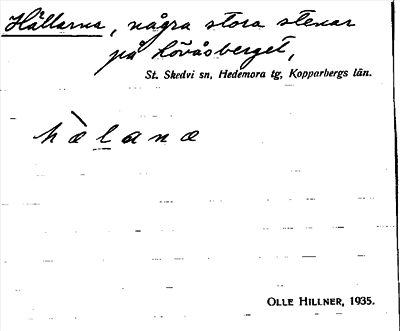 Hällarna, några stora stenar
på Lövåsberget,
St. Skedvi sn, Hedemora tg, Kopparbergs län.
hæ̀lana
OLLE HILLNER, 1935.